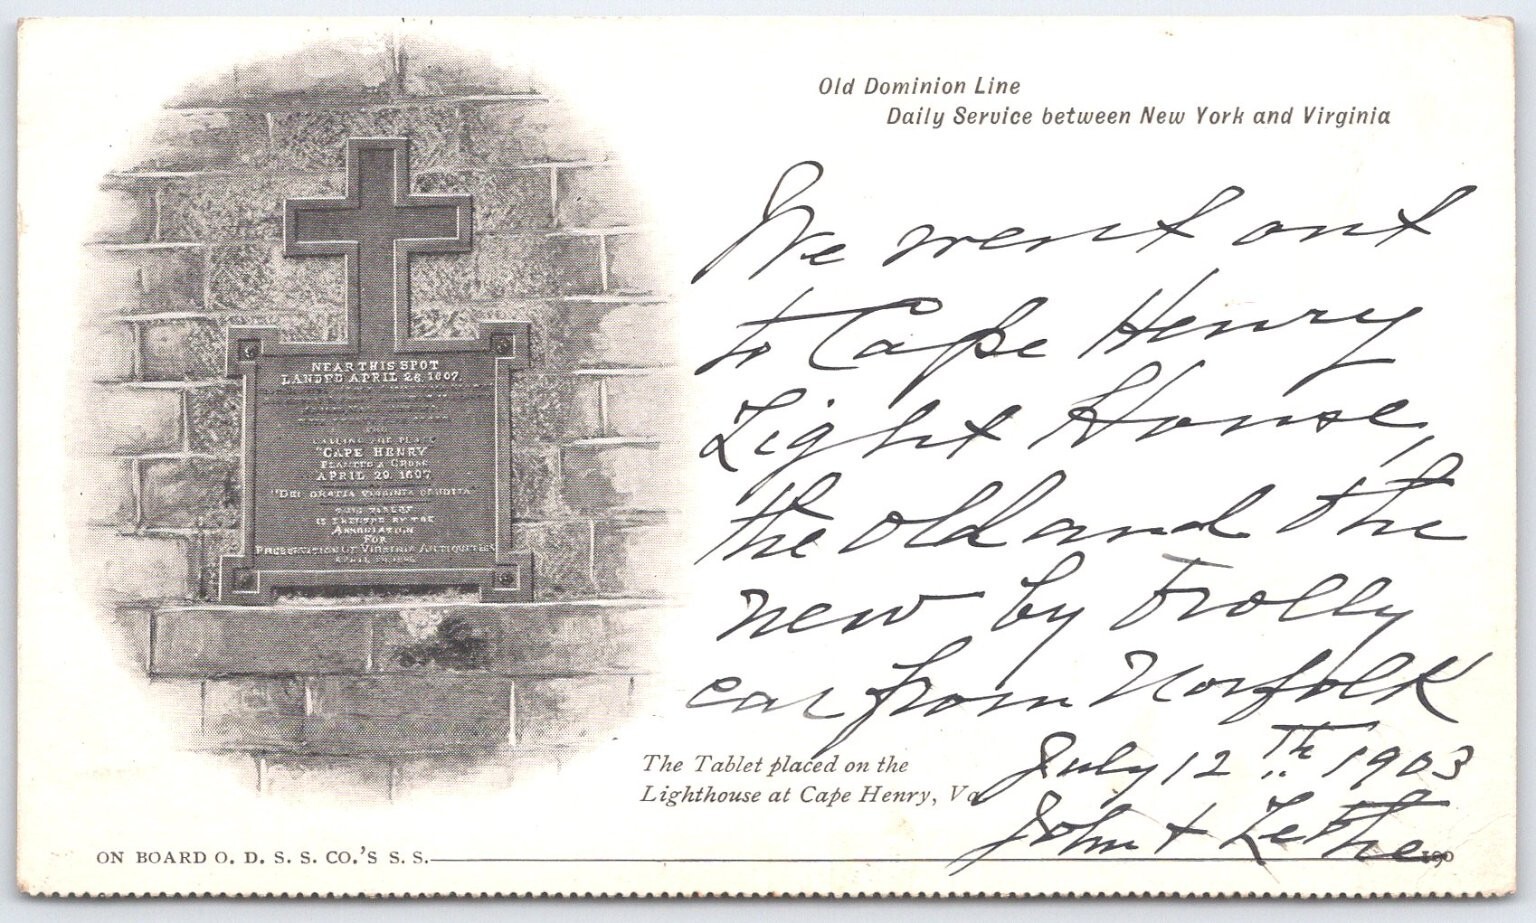 Old Dominion Line
Daily Service between New York and Virginia
We went out
to Cape Henry
Light House,
the old and the
new by Trolly
car from Norfolk
July 12 Th 1903
John + Lethe
NEAR THIS SPOT
LANDED APRIL 26 1607
CALLING THE PLACE
"CAPE HENRY
PLANTED A CROSS
APRIL 29. 1607
"DEI GRATIA VIRGINIA CONDITA"
THIS TABLET
IS ERECTED BY THE
ASSOCIATION
FOR
PRESERVATION OF VIRGINIA ANTIQUITIES
The Tablet placed on the
Lighthouse at Cape Henry, Va
ON BOARD O. D. S. S. CO.'S S. S.
190